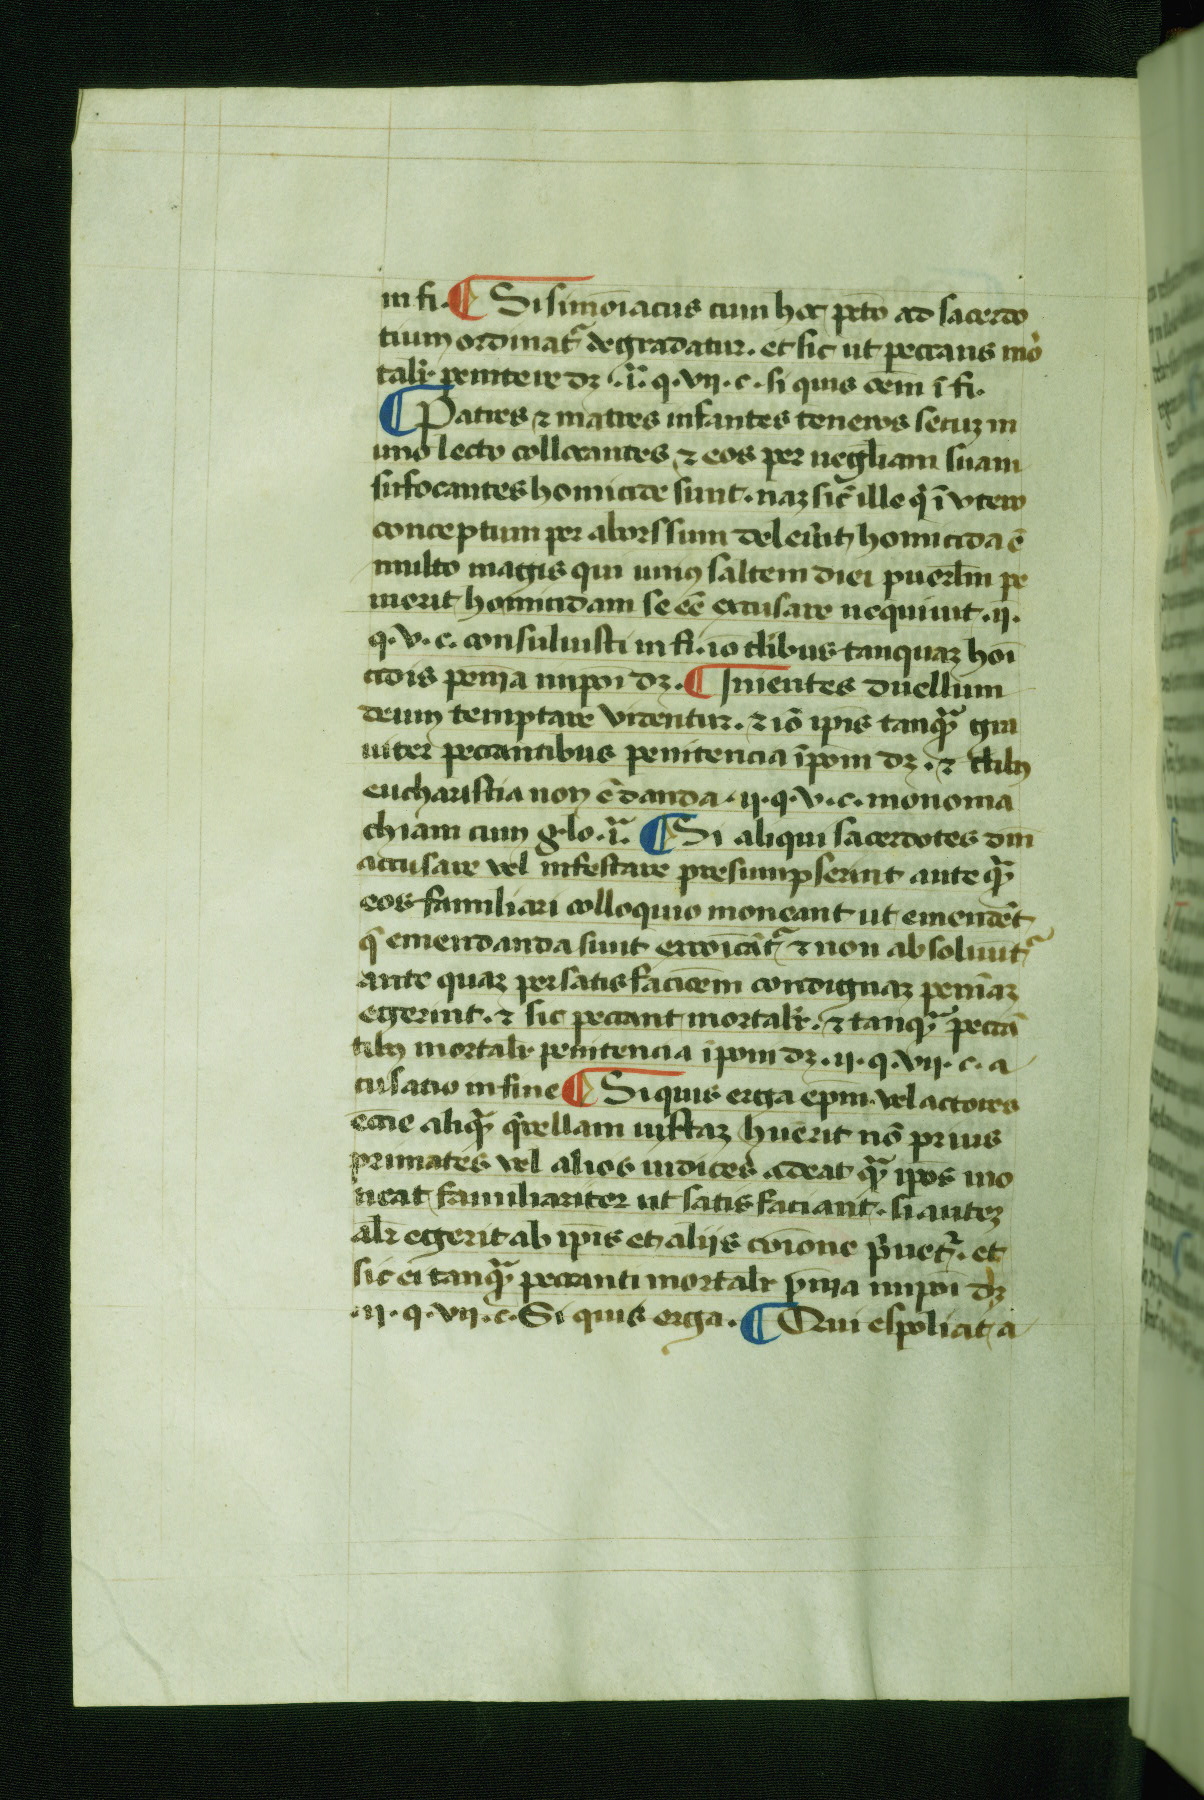 in fi. ¶ Si simōiacus cum hoc pctō ad sacerdo
tium ordinatᷣ degradatur. et sic ut peccans mo
talr̄ penitere dꝫ .i. q. vii. c. si quis oēm ī fi.
¶ Patres ⁊ matres infantes teneros secuꝫ in
uno lecto collocantes ⁊ eos per negliḡam suam
sufocantes homicide sunt. naꝫ sic̄ ille qͥ ī vtero
conceptum per aborssum deleūit homicida ē
multo magis qui unıꝰ saltem diei puerlm̄ pe
merit homicidam se eē excusare nequiuit .ii.
q. v. c. consuluisti in fi. iō tlibus tanquaꝫ hoī
cidis penīa inponi dꝫ. ¶ Inientes duellum
deum temptare videntur. ⁊ iō ipīs tanqᷓ gra
uiter peccantibus penitencia īponi dꝫ. ⁊ tlibꝰ
eucharistia non ē danda. ii. q. v. c. monoma
chiam cum glo. i. ¶ Si aliqui sacerdotes dn̄i
accusare vel infestare presumpserint ante qᷓ
eos familiari colloquio moneant ut emendēt
q̄ emendanda sunt excōicātᷣ ⁊ non absoluūtᷣ
ante quaꝫ per satisfaciōem condignaꝫ penīaꝫ
egerint. ⁊ sic peccant mortalr̄. ⁊ tanqᷓ peccā
tibꝰ mortalr̄ penitencia īponi dꝫ. ii. q. vii. c. a
cusatio in fine ¶ Si quis erga epm̄. vel actores
eccīe aliqᷓ qͥrellam iustaꝫ huerit nō prius
primates vel alios iudices adeat qᷓ ipōs mo
neat familiariter ut satisfaciant. si auteꝫ
alr̄ egerit ab ipīs et aliis cōione pͥuetᷣ. et
sic ei tanqᷓ peccanti mortalr̄ pn̄ia inponi dꝫ
.ii. q. vii. c. Si quis erga. ¶ Qui espoliat a